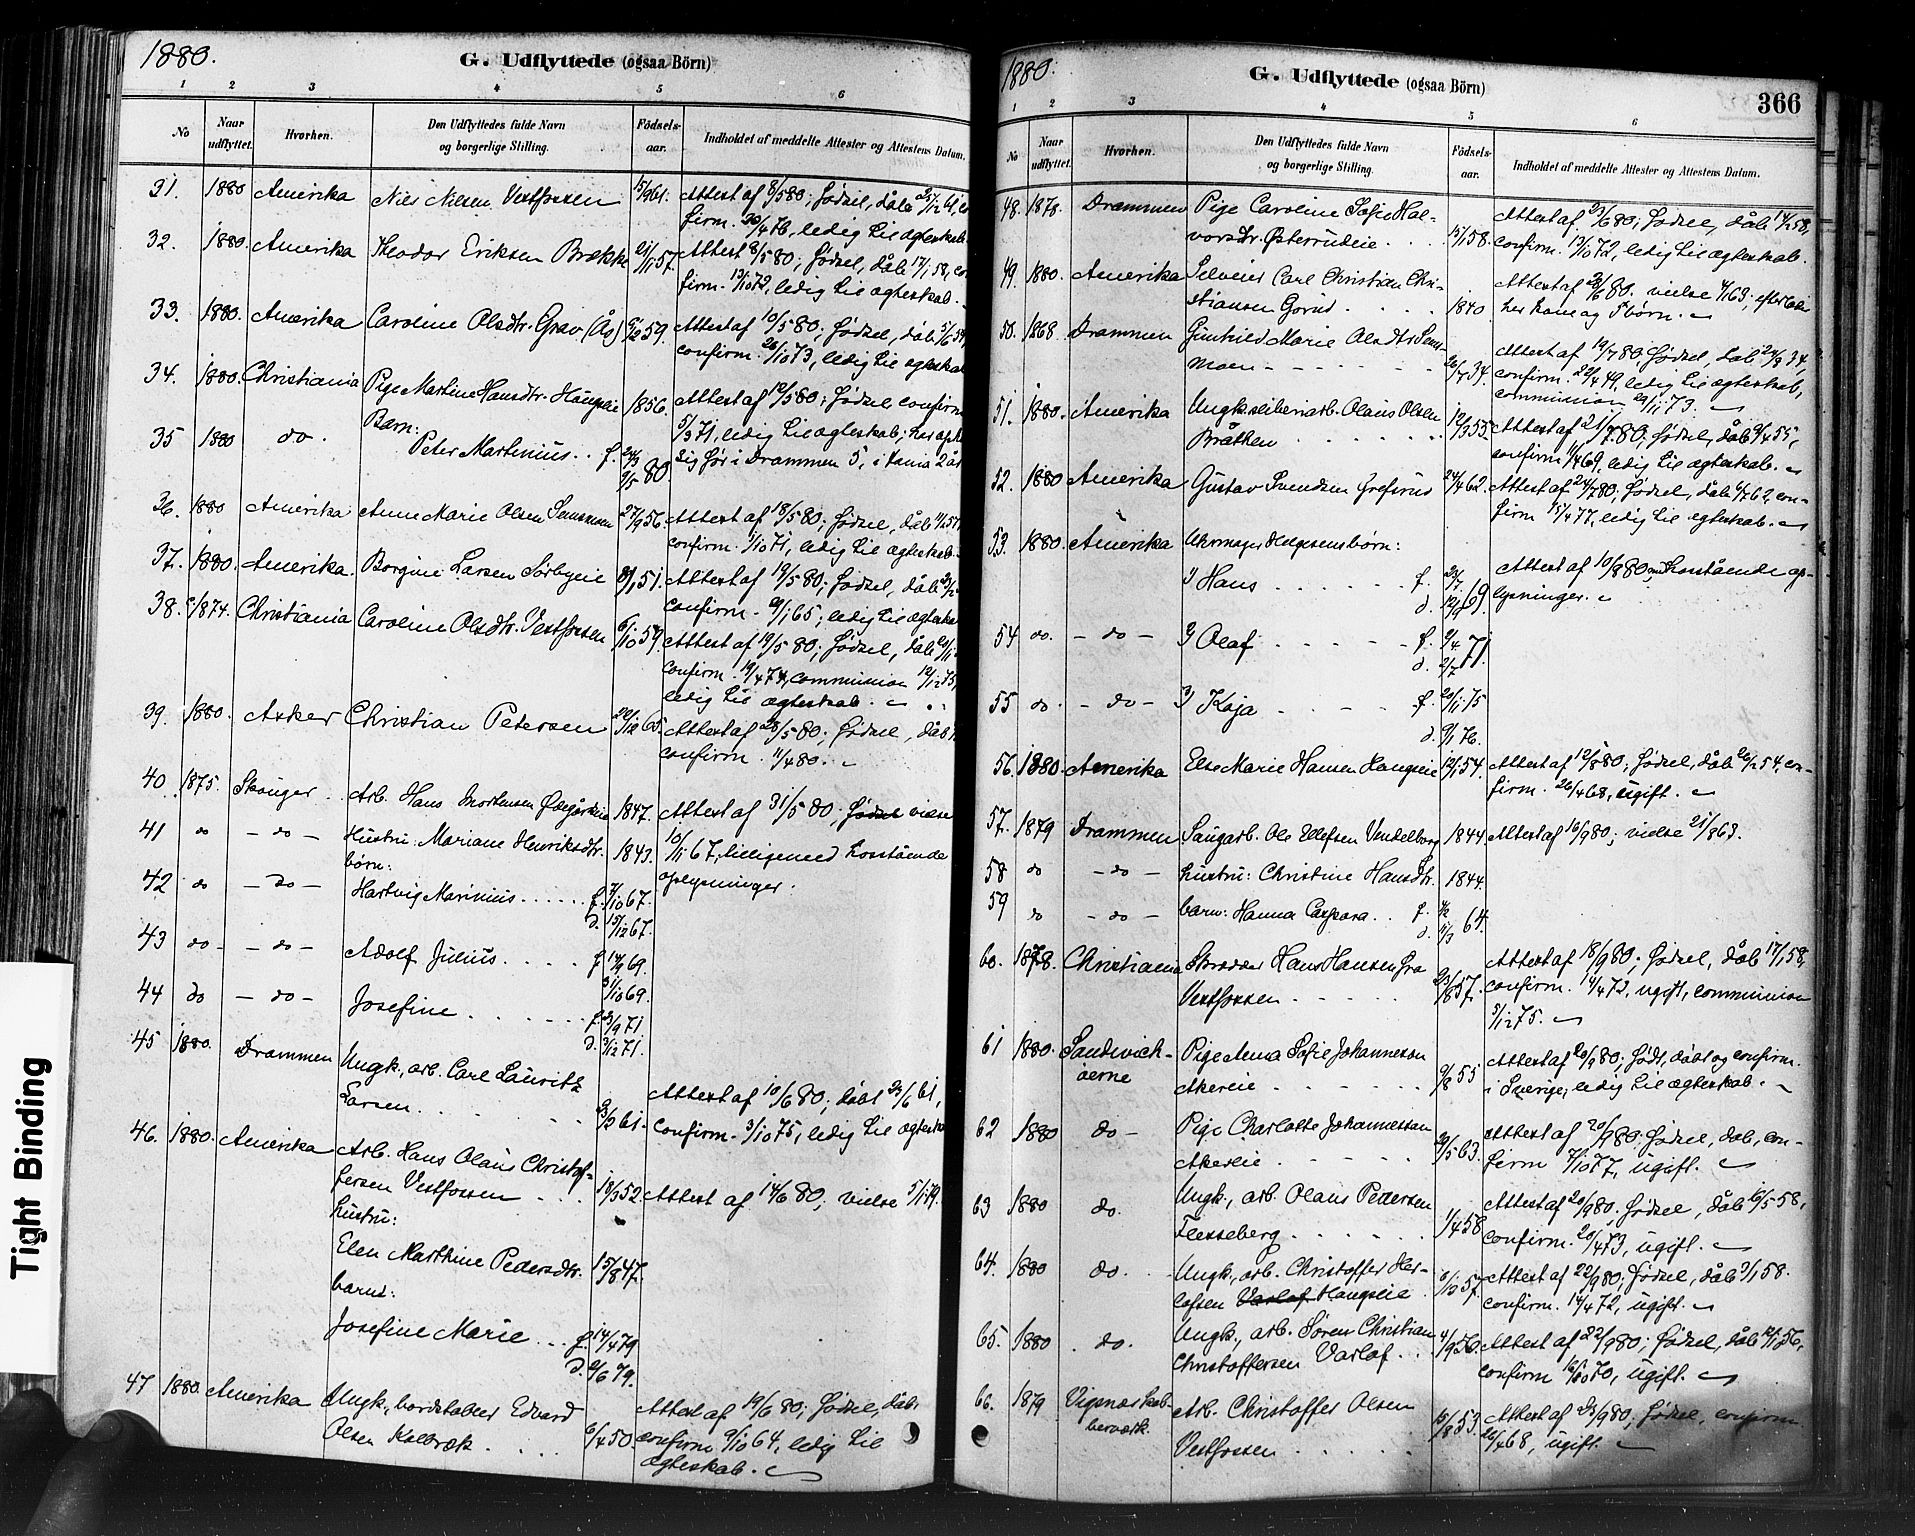 1880.
G. Udflyttede (ogsaa Börn)
1 2 3 4 5 6
No
Naar udflyttet.
Hvorhen.
Den Udflyttedes fulde Navn og borgerlige Stilling.
Födsels-aar.
Indholdet af meddelte Attester og Attestens Datum.
31. 1880 Amerika Niels Nilsen Vestfossen Attest af 8/5 80; Fødsel, dåb
firm. ledig til ægteskab.
32. 1880. Amerika Theodor Eriksen Brække 21/11 57. Attest 8/5 80; Fødsel, dåb 17/1 58, con-
firm. 13/10 72, ledig til ægteskab.
33. 1880. Amerika Caroline Olsdtr. Grav (Ås) Attest af 10/5 80; Fødsel, dåb
confirm. 26/10 73, ledig til ægteskab
34. 1880. Christiania Pige Martine Hansdtr. Haugseie 1856. Attest af 12/5 80; Fødsel confirm
Barn: 5/3 71, ledig til ægteskab; har opholdt
35 1880 do. Peter Martinius.. f. sig før i Drammen 5, i Xania 2 år
80.
36. 1880 Amerika Anne Marie Olsen Semsmoen 27/9 56. Attest af 18/5 80; Fødsel, dåb
confirm. 1/10 71, ledig til ægteskab.
37. 1880. Amerika. Borgine Larsen Sørbyeie 51. Attest af 19/5 80; Fødsel, dåb
confirm. 65; ledig til ægteskab
38. 1874. Christiania Caroline Olsdtr. Vestfossen 6/10 59. Attest af 19/5 80; Fødsel, dåb
confirm. 19/4 74, communion 12/12 75,
ledig til ægteskab.
39. 1880. Asker Christian Petersen 65. Attest af 28/5 80; Fødsel, dåb
confirm. 11/4 80.
40 1875. Skouger Arb. Hans Mortensen Ødegårdeie 1847. Attest af 31/5 80; Fødsel vielse
41 do — do — Hustru: Mariane Henriksdtr. 1843. 10/11 67, tilligemed hosstående
børn: oplysninger.
42 do — do — Hartvig Marinius...... f. 7/10 67.
d. 15/12 67.
43 do — do — Adolf Julius..... f 14/9 69.
31/10 69.
44 do — do — Josefine...... f. 71.
d. 3/12 71.
45 1880. Drammen Ungk., arb. Carl Lauritz
Larsen. 61. Attest af 10/6 80; døbt 61,
confirm. 3/10 75, ledig til ægteskab
46. 1880. Amerika Arb. Hans Olaus Christof-
fersen Vestfossen ... 52. Attest af 14/6 80; vielse
hustru:
Elen Marthine Pedersdtr. 15/8 47.
barn:
Josefine Marie.. f. 14/4 79
d. 79.
47 1880. Amerika Ungk., bordstabler Edvard Attest af 19/6 80; Fødsel, dåb
Olsen Kolbræk. 6/4 50. confirm 9/10 64, ledig til
ægteskab.
1880.
G. Udflyttede (ogsaa Börn)
366
1 2 3 4 5 6
No
Naar udflyttet.
Hvorhen.
Den Udflyttedes fulde Navn og borgerlige Stilling.
Födsels-aar.
Indholdet af meddelte Attester og Attestens Datum.
48. 1878. Drammen Pige Caroline Sofie Hal- Attest af 23/6 80; Fødsel, dåb 58,
vorsdr. Østerrudeie... 58. confirm. 13/10 72, ledig til ægteskab.
49. 1880. Amerika Carl Christian Chri- Attest af 80. vielse 63; efterlader
stiansen Gorud... 1840 her kone og børn.
50. 1868 Drammen Gunhild Marie Olsdtr. Sems- Attest af 19/7 80, Fødsel, dåb 24/8 34,
moen 26/7 34. confirm. 22/4 49, ledig til ægteskab,
communion 73.
51. 1880. Amerika Ungk. sliberiarb. Olaus Olsen Attest af 21/7 80; Fødsel, dåb 9/4 55,
Bråthen.... 12/3 55. confirm. 11/4 69, ledig til ægteskab.
52. 1880 Amerika Gustav Svendsen Grefsrud 24/4 62. Attest af 24/7 80; Fødsel, dåb 62, con-
firm 15/4 77, ledig til egteskab.
53. 1880. Amerika Uhrmager Helgesens børn: Attest af 10/8 80, m. hosstående op-
1) Hans.... f. lysninger.
d. 69
54 do. — do — 2) Olaf... f. 2/4
d. 2/7 71.
55 do. — do — 3) Kaja... f. 20/11 75
d. 9/1 76.
56. 1880. Amerika Else Marie Hansen Haugseie 12/1 54. Attest af 12/8 80; Fødsel, dåb 54, con-
firm. 26/4 68, ugift.
57. 1879 Drammen Saugarb. Ole Ellefsen Vendelborg 1844. Attest af 16/9 80; vielse 21/8 63.
58 do — do — hustru: Christine Hansdtr. 1844.
59 do — do — barn: Hanna Caspara.. f.
d. 64.
60. 1878. Christiania Skrædder Hans Hansen fra Attest af 18/9 80; Fødsel, dåb 17/1 58,
Vestfossen.... 23/8 57. confirm. 14/4 72, ugift, communion
5/12 75.
61 1880. Sandwich- Pige Anna Sofie Johannesson Attest af 20/9 80; født, døbt og confirm.
øerne Akereie.... 9/8 55 i Sverige; ledig til ægteskab.
62 1880 do — Pige Charlotte Johannesson Attest af 20/9 80; Fødsel, dåb, con-
Akereie... 63. firm 7/10 77, ugift.
63 1880 do. Ungk., arb. Olaus Pedersen Attest af 20/9 80. Fødsel, dåb 16/5 58,
Flesseberg....... 1/4 58 confirm. 20/4 73, ugift.
64. 1880 do. Ungk., arb. Christoffer Her- Attest af 22/9 80; Fødsel, dåb 58.
lofsen Varlof Haugseie 57. confirm. 14/4 72, ugift.
65. 1880 do. Ungk., arb. Søren Christian 4/9 56. Attest af 22/9 80; Fødsel, dåb 56,
Christoffersen Varlof... confirm 70, ugift.
66. 1879 Vigsnæs kob- Arb. Christoffer Olsen Attest af 23/9 80; Fødsel, confirm.
berværk. Vestfossen..... 15/8 53. 26/4 68, ugift.
Tight Binding